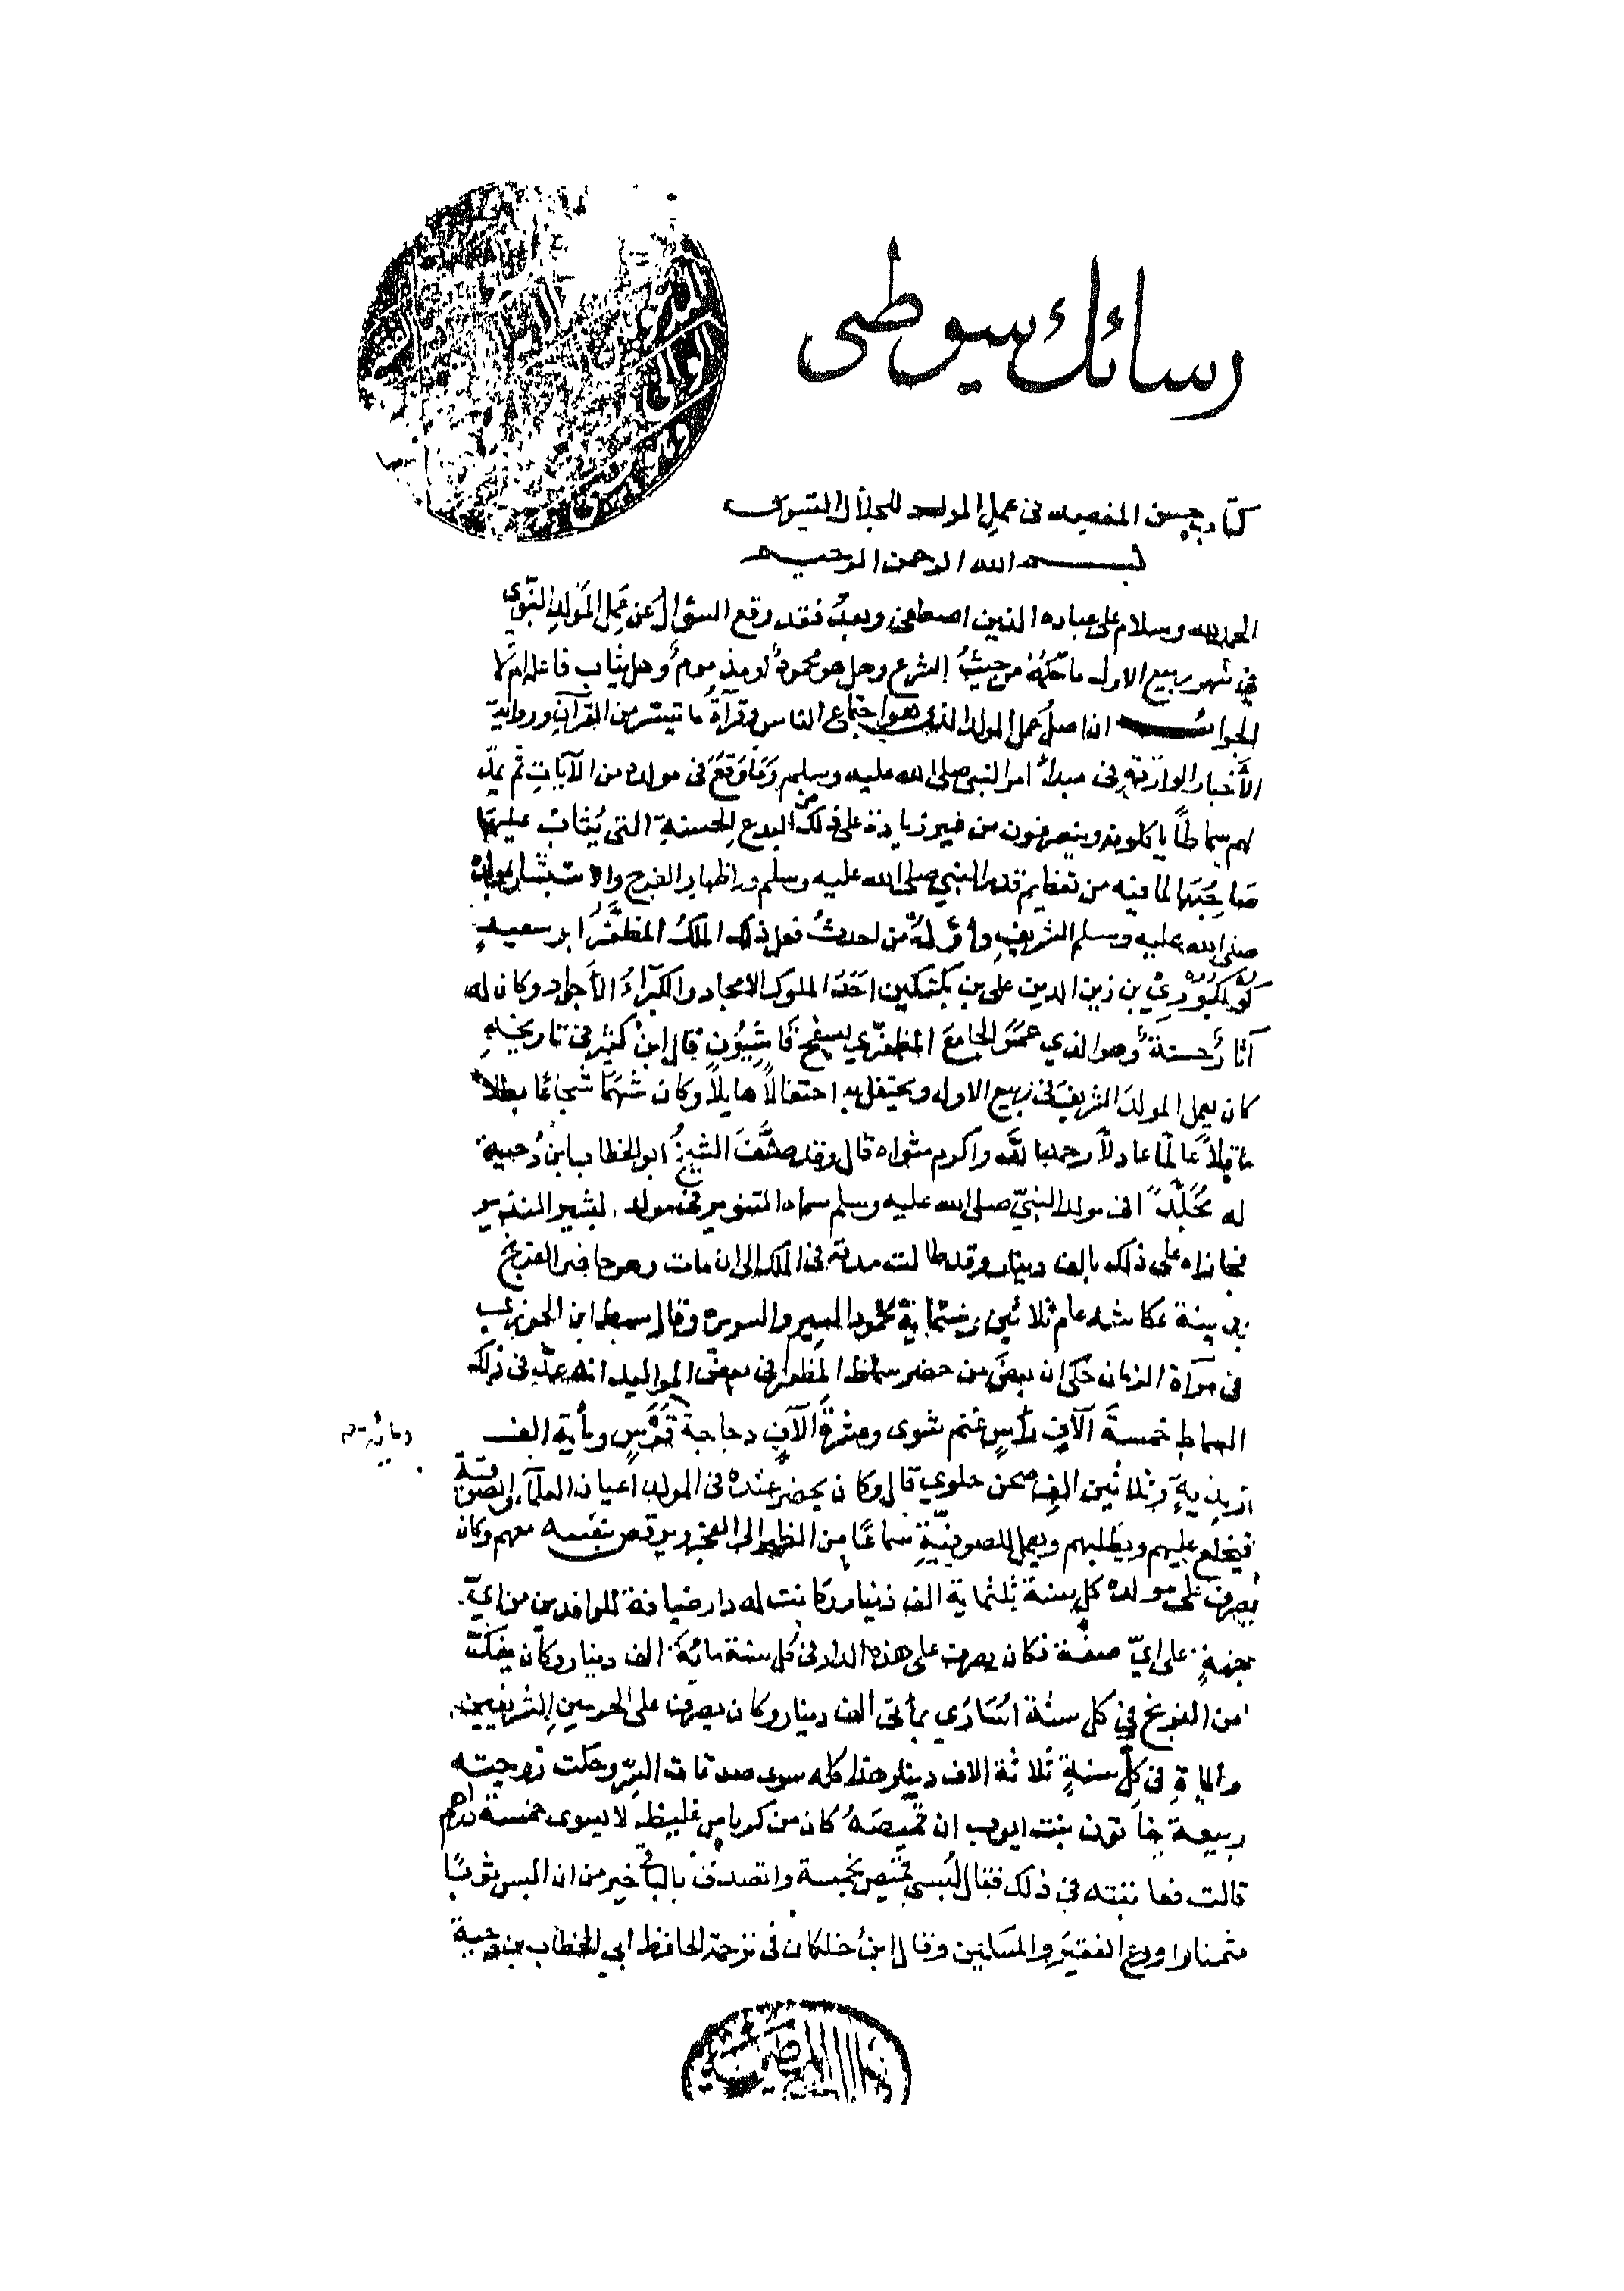 رسائل سيوطى
كتاب حسن المقصد فى عمل المولد للجلال السيوطى
بسم الله الرحمن الرحيم
الحمد لله وسلام على عباده الذين اصطفى وبعدُ فقد وقع السؤالُ عن عَمِل المَولِد النبَّوي
في شهر ربيع الاول ما حُكمُهُ من حيثُ الشرع وهل هو محمودٌ او مذمومٌ وهل يثاب فاعله ام لا
الجوابُ ان اصلُ عمل المولد الذى هو اجتماع الناس وقرآةُ ما تيسّر من القرآنِ ورواية
الأَخبار الواردَةِ فى مبدأ امر النبى صلى الله عليه وسلم وَمَا وَقَعَ فى مولده من الآيات ثم يمدّ
لهم سِمَاطاً ياكلونه وينصرفون من غير زيادة على ذلك من البدع الحسنةِ التى يُثابُ عليها
صَاحِبُهَا لما فيه من تعظيم قدر النبي صلى الله عليه وسلم واظهار الفرح والاستبشار بمولده
صلى الله عليه وسلم الشريفِ وأوّلُ من احدثَ فعل ذلك الملكُ المظفَّرُ ابو سعيدٍ
كُوكُبُورِيْ بن زين الدين على بن بكتكين اَحَدُ الملوك الامجاد والكبَرآءِ الأَجواد وكان له
آثارٌ حسنةٌ وهو الذي عَمَّرَ الجامعَ المظفّري بسفح قَاسِيُونِ قال ابنُ كثيرٍ فى تاريخهِ
كان يعمل المولدَ الشريفَ فى ربيع الاول ويحتفل به احتفالاً هايلاً وكان شهمًا شُجَاعًا بطلاً
عَاقِلاً عَالمًا عادلاً رحمه الله واكرم مثواه قال وقد صنَّفَ الشيخُ ابو الخطاب ابنُ دُحية
له مُجَلّدًا فى مولد النبيّ صلى الله عليه وسلم سماه التنوير فى مولد البشير النذير
فجازاه على ذلك بالف دينار وقد طالت مدته فى الملك الى ان مات وهو محاصر الفرنج
بمدينة عكا سنه عام ثلاثين وستّمايةً محمود السير والسريرة وقال سبط ابن الجوزي
فى مرآة الزمان حكى ان بعضَ من حضر سماط المظفر فى بعض المواليد انه عدّ فى ذلك
السماط خمسةَ آلافِ رأسِ غنم شوى وعشرةَ آلافِ دجاجة ومأية الف
زبديةٍ وثلاثين الف صحن حلوي قال وكان يحضر عنده فى المولد اعيان العلمآءِ والصوفيّة
فيخلع عليهم ويطلبهم ويعمل للصوفيّةِ سَمَاعًا من الظهر الى الفجر ويرقص بنفسه معهم وكان
يصرف على مولده كل سنة ثلثماية الف دينار وكانت له دار ضيافة للوافدين من ايّ
جهةٍ على ايّ صفة فكان يصرف على هذه الدار فى كل سنة مائة الف دينار وكان يفكّ
من الفرنج في كل سنة اُسَارَى بمأتى الف دينار وكان يصرف على الحرمين الشريفين
والمياةِ فى كلّ سنةٍ ثلاثة الاف دينار هذا كله سوى صدقات السِّرّ وحكت زوجته
ربيعة خاتون بنت ايوب ان قميصَهُ كان من كرباس غليظ لا يسوى خمسة دراهم
قالت فعاتبته فى ذلك فقال لُبسى قميص بخمسة واتصدّق بالباقى خير من ان البس ثوبًا
مثمنا وادع الفقير والمسكين وقال ابنُ خلكان فى ترجمة الحافظ ابي الخطاب بن دحية